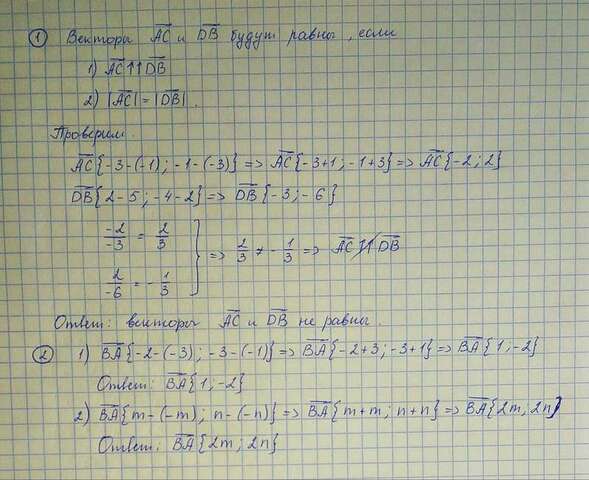 ① Векторы AC и DB будут равны, если
1) AC↑↑DB
2) |AC| = |DB|.
Проверим.
AC{-3-(-1); -1-(-3)} => AC{-3+1; -1+3} => AC{-2; 2}
DB{2-5; -4-2} => DB{-3; -6}
-2/-3 = 2/3
2/-6 = -1/3
} => 2/3 ≠ -1/3 => AC ↑↑ DB
Ответ: векторы AC и DB не равны.
② 1) BA{-2-(-3); -3-(-1)} => BA{-2+3; -3+1} => BA{1; -2}
Ответ: BA{1; -2}
2) BA{m-(-m); n-(-n)} => BA{m+m; n+n} => BA{2m; 2n}
Ответ: BA{2m; 2n}